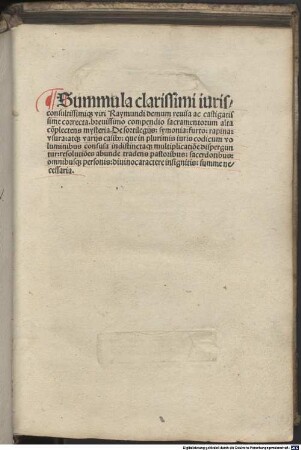 Summula clarissimi iuris-
consultissimiq; viri Raymundi demum reuisa ac castigatis
sime correcta. breuissimo compendio sacramentorum alta
cōplectens mysteria. De sortilegijs: symonia: furto: rapina:
vsura: atq; varijs casib9: que in plurimis iuris codicum vo
luminibus confusa indistinctaq; multiplicatiōe disperguun
tur: resolutiōes abunde tradens pastoribus: sacerdotibus:
omnibusq; personis: diuino caractere insignitis: summe ne
cessaria.